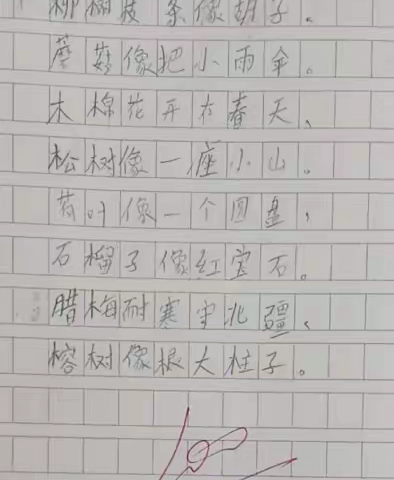 柳树枝条像胡子、
蘑菇像把小雨伞。
木棉花开在春天、
松树像一座小山。
荷叶像一个圆盘，
石榴子像红宝石。
腊梅耐寒守北疆、
榕树像根大柱子。